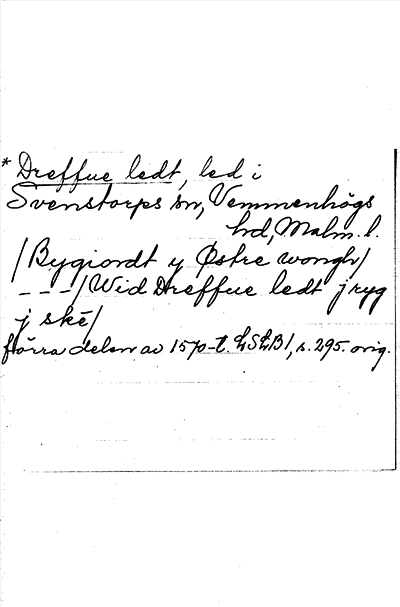 * Dreffue ledt, led i
Svenstorps sn, Vemmenhögs
hd, Malm. l.
/Bygiordt y Østre wongh/
---/Wid Dreffue ledt j ryg
j ské/
förra delen av 1570-t. LSLB1, s. 295. orig.